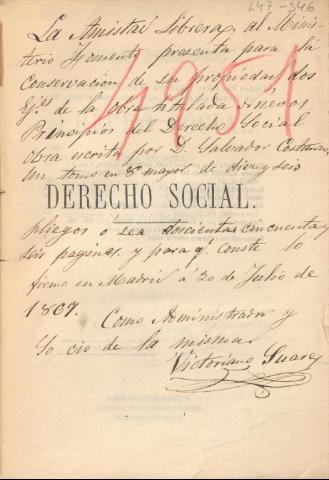 L47-346
La Amistad Librera, al Minis-
terio Fomento presenta para la
Conservacion de su propiedad dos
Ejes de la obra titulada "nuevos
Principios del Derecho Social
obra escrita por D. Salvador Costanzo,
Un tomo en 8º mayor de diez y seis
DERECHO SOCIAL.
pliegos o sea doscientas cincuenta y
seis paginas. y para q. conste lo
firmo en Madrid á 20 de Julio de
1869.
4951
Como Administrador y
Socio de la misma
Victoriano Suarez